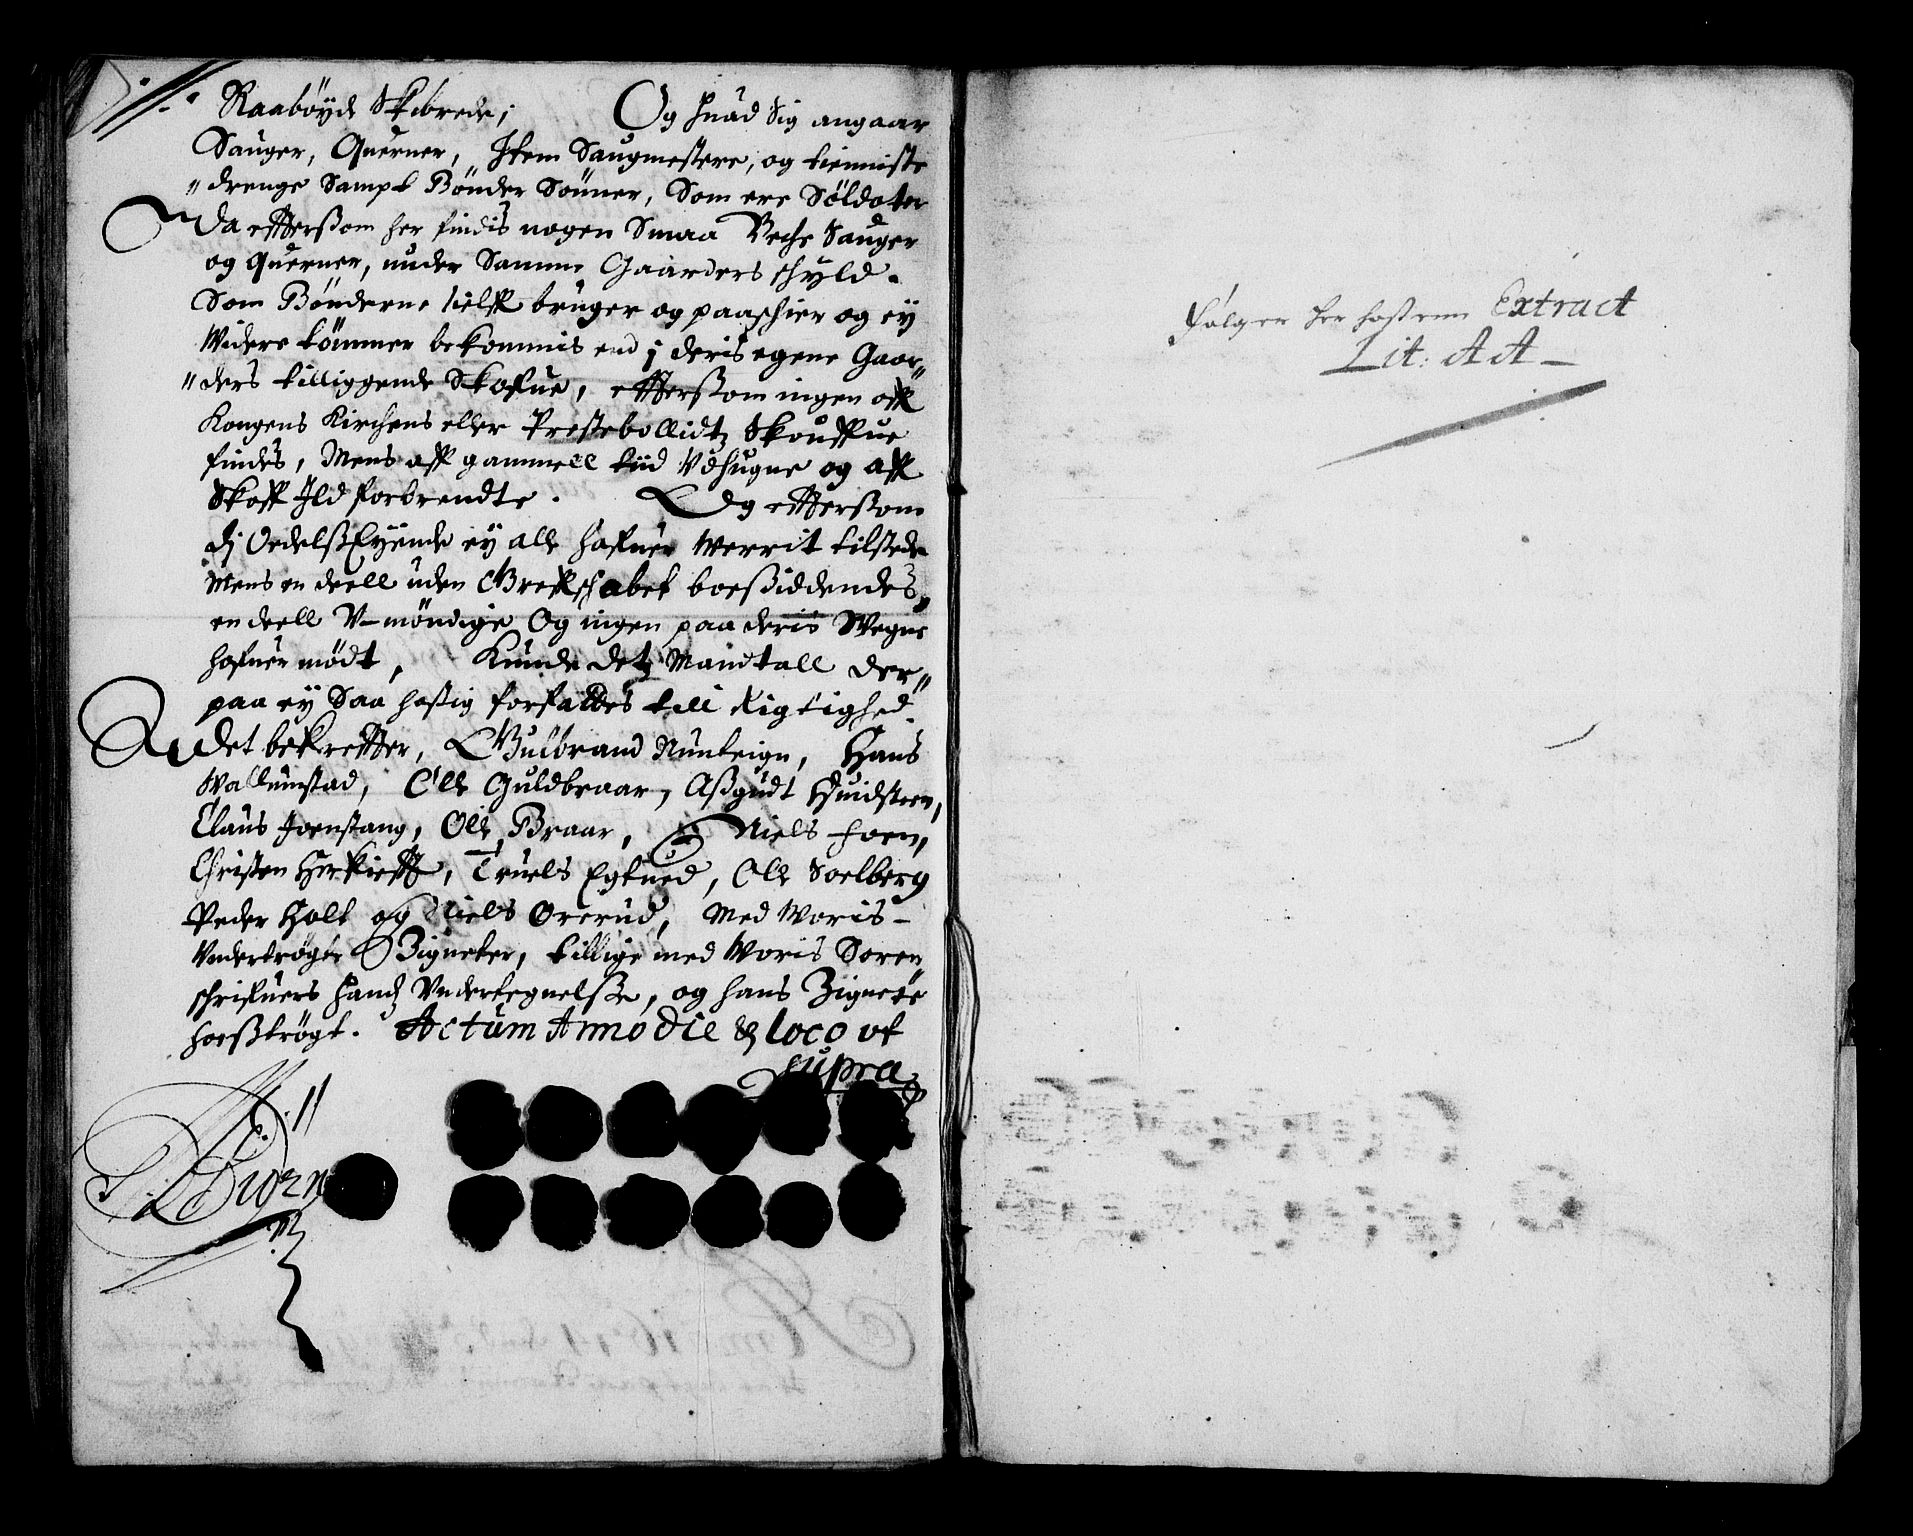 Raabøyde Skibrede; Og huad Sig angaar
Sauger, Querner, Item Saugmestere, og tienniste
drenge Sampt Bønder Sønner, Som ere Søldater
Da effterssom her findis nogen Smaa Bechs Sauger
og Querner, under Samme Gaarders schyld.
Som Bønderne sielff bruger og paaschier og ey
Widere tømmer bekommis end j deris egene Gaar„
„ders tilliggende Skofue, effterssom ingen aff
Kongens Kirchens eller Prestebollidtz Skouffue
findes, Mens aff gammell tiid Vdhugne og aff
Skoff Ild forbrendte. Og effterssom
dj Oedelss Eyende ey alle hafuer Werrit tilstede
Mens en deell uden Greffschabet boessiddendes,
en deell V-møndige Og ingen paa deris Wegne
hafuer mødt, Kunde detz Mandtall der„
paa ey Saa hastig forfattes till Rigtighed.
Det bekreffter, Gulbrand Nunteign, Hans
Wallumstad, Olle Guldbraar, Assgudt Huidsteen,
Claus Joenstang, Ole Braar, Niels Foen,
Christen Herkieff, Truels Egtued, Ole Soelberg
Peder Holt og Niels Ørerud, Med Woris-
Vndertrøgte Zigneter, tillige med Woris Soren
schrifuers Handz Vndertegnelsse, og hans Zignete
hoesstrøgt. Actum Anno die & loco ut
supra
Biørn
Følger her hoss en Extract
Lit: AA